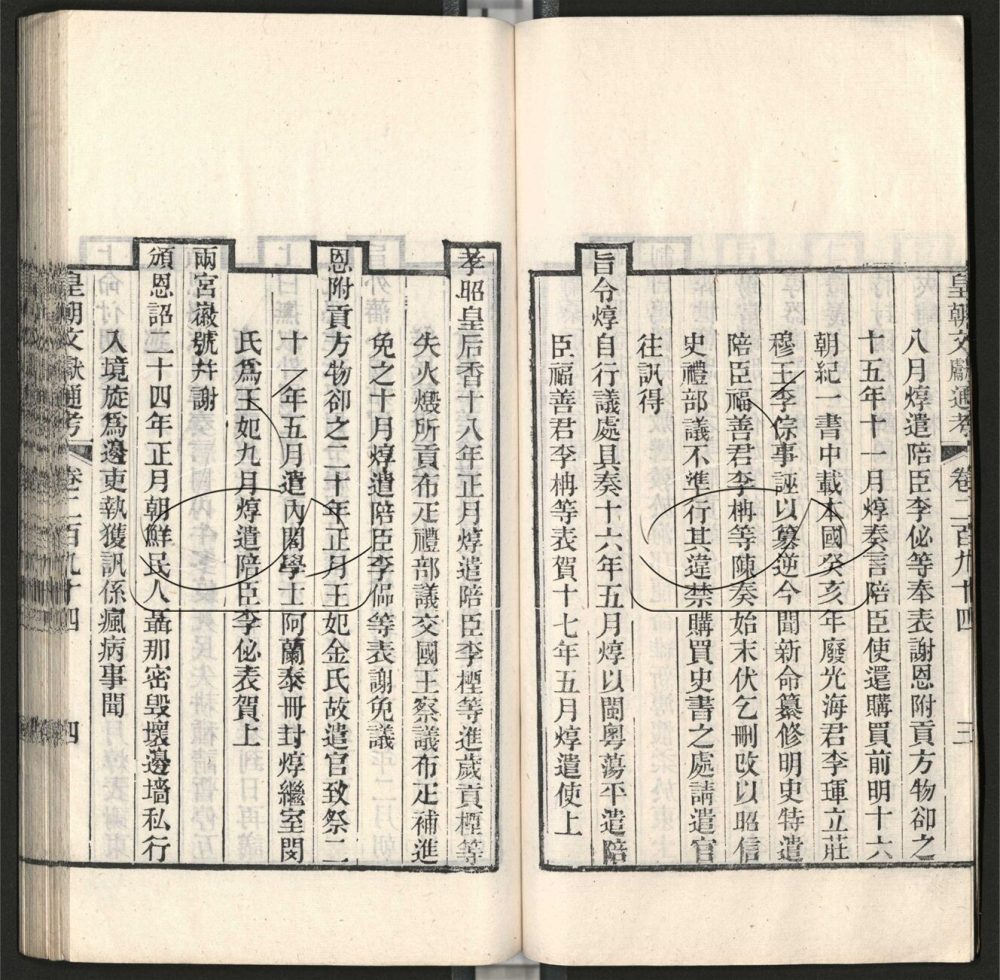 皇朝文獻通考 卷二百九十四 三
八月焞遣陪臣李佖等奉表謝恩附貢方物卻之
十五年十一月焞奏言陪臣使還購買前明十六
朝紀一書中載本國癸亥年廢光海君李琿立莊
穆王李倧事誣以篡逆今聞新命纂修明史特遣
陪臣福善君李柟等陳奏始末伏乞刪改以昭信
史禮部議不準行其違禁購買史書之處請遣官
往訊得
旨令焞自行議處具奏十六年五月焞以閩粤蕩平遣陪
臣福善君李柟等表賀十七年五月焞遣使上
孝昭皇后香十八年正月焞遣陪臣李㮒等進歲貢㮒等
失火燬所貢布疋禮部議交國王察議布疋補進
免之十月焞遣陪臣李偘等表謝免議
恩附貢方物卻之二十年正月王妃金氏故遣官致祭二
十一年五月遣內閣學士阿蘭泰冊封焞繼室閔
氏爲王妃九月焞遣陪臣李佖表賀上
兩宮徽號幷謝
頒恩詔二十四年正月朝鮮民人聶那密毀壞邊墻私行
入境旋爲邊吏執獲訊係瘋病事聞
皇朝文獻通考 卷二百九十四 四